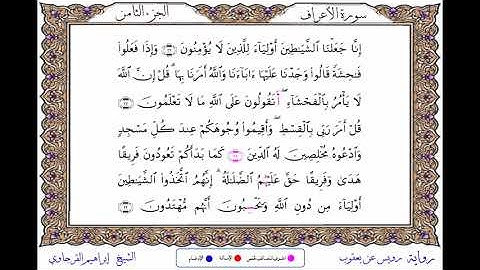 سورة الأعراف
الجزء الثامن
إِنَّا جَعَلْنَا ٱلشَّيَٰطِينَ أَوْلِيَآءَ لِلَّذِينَ لَا يُؤْمِنُونَ وَإِذَا فَعَلُوا۟
فَٰحِشَةً قَالُوا۟ وَجَدْنَا عَلَيْهَآ ءَابَآءَنَا وَٱللَّهُ أَمَرَنَا بِهَا ۗ قُلْ إِنَّ ٱللَّهَ
لَا يَأْمُرُ بِٱلْفَحْشَآءِ ۖ أَتَقُولُونَ عَلَى ٱللَّهِ مَا لَا تَعْلَمُونَ
قُلْ أَمَرَ رَبِّى بِٱلْقِسْطِ ۖ وَأَقِيمُوا۟ وُجُوهَكُمْ عِندَ كُلِّ مَسْجِدٍ
وَٱدْعُوهُ مُخْلِصِينَ لَهُ ٱلدِّينَ ۚ كَمَا بَدَأَكُمْ تَعُودُونَ فَرِيقًا
هَدَىٰ وَفَرِيقًا حَقَّ عَلَيْهُمُ ٱلضَّلَٰلَةُ ۗ إِنَّهُمُ ٱتَّخَذُوا۟ ٱلشَّيَٰطِينَ
أَوْلِيَآءَ مِن دُونِ ٱللَّهِ وَيَحْسِبُونَ أَنَّهُم مُّهْتَدُونَ
رواية رويس عن يعقوب
الإمالة
الإدغام
الشيخ إبراهيم الفرجاوي